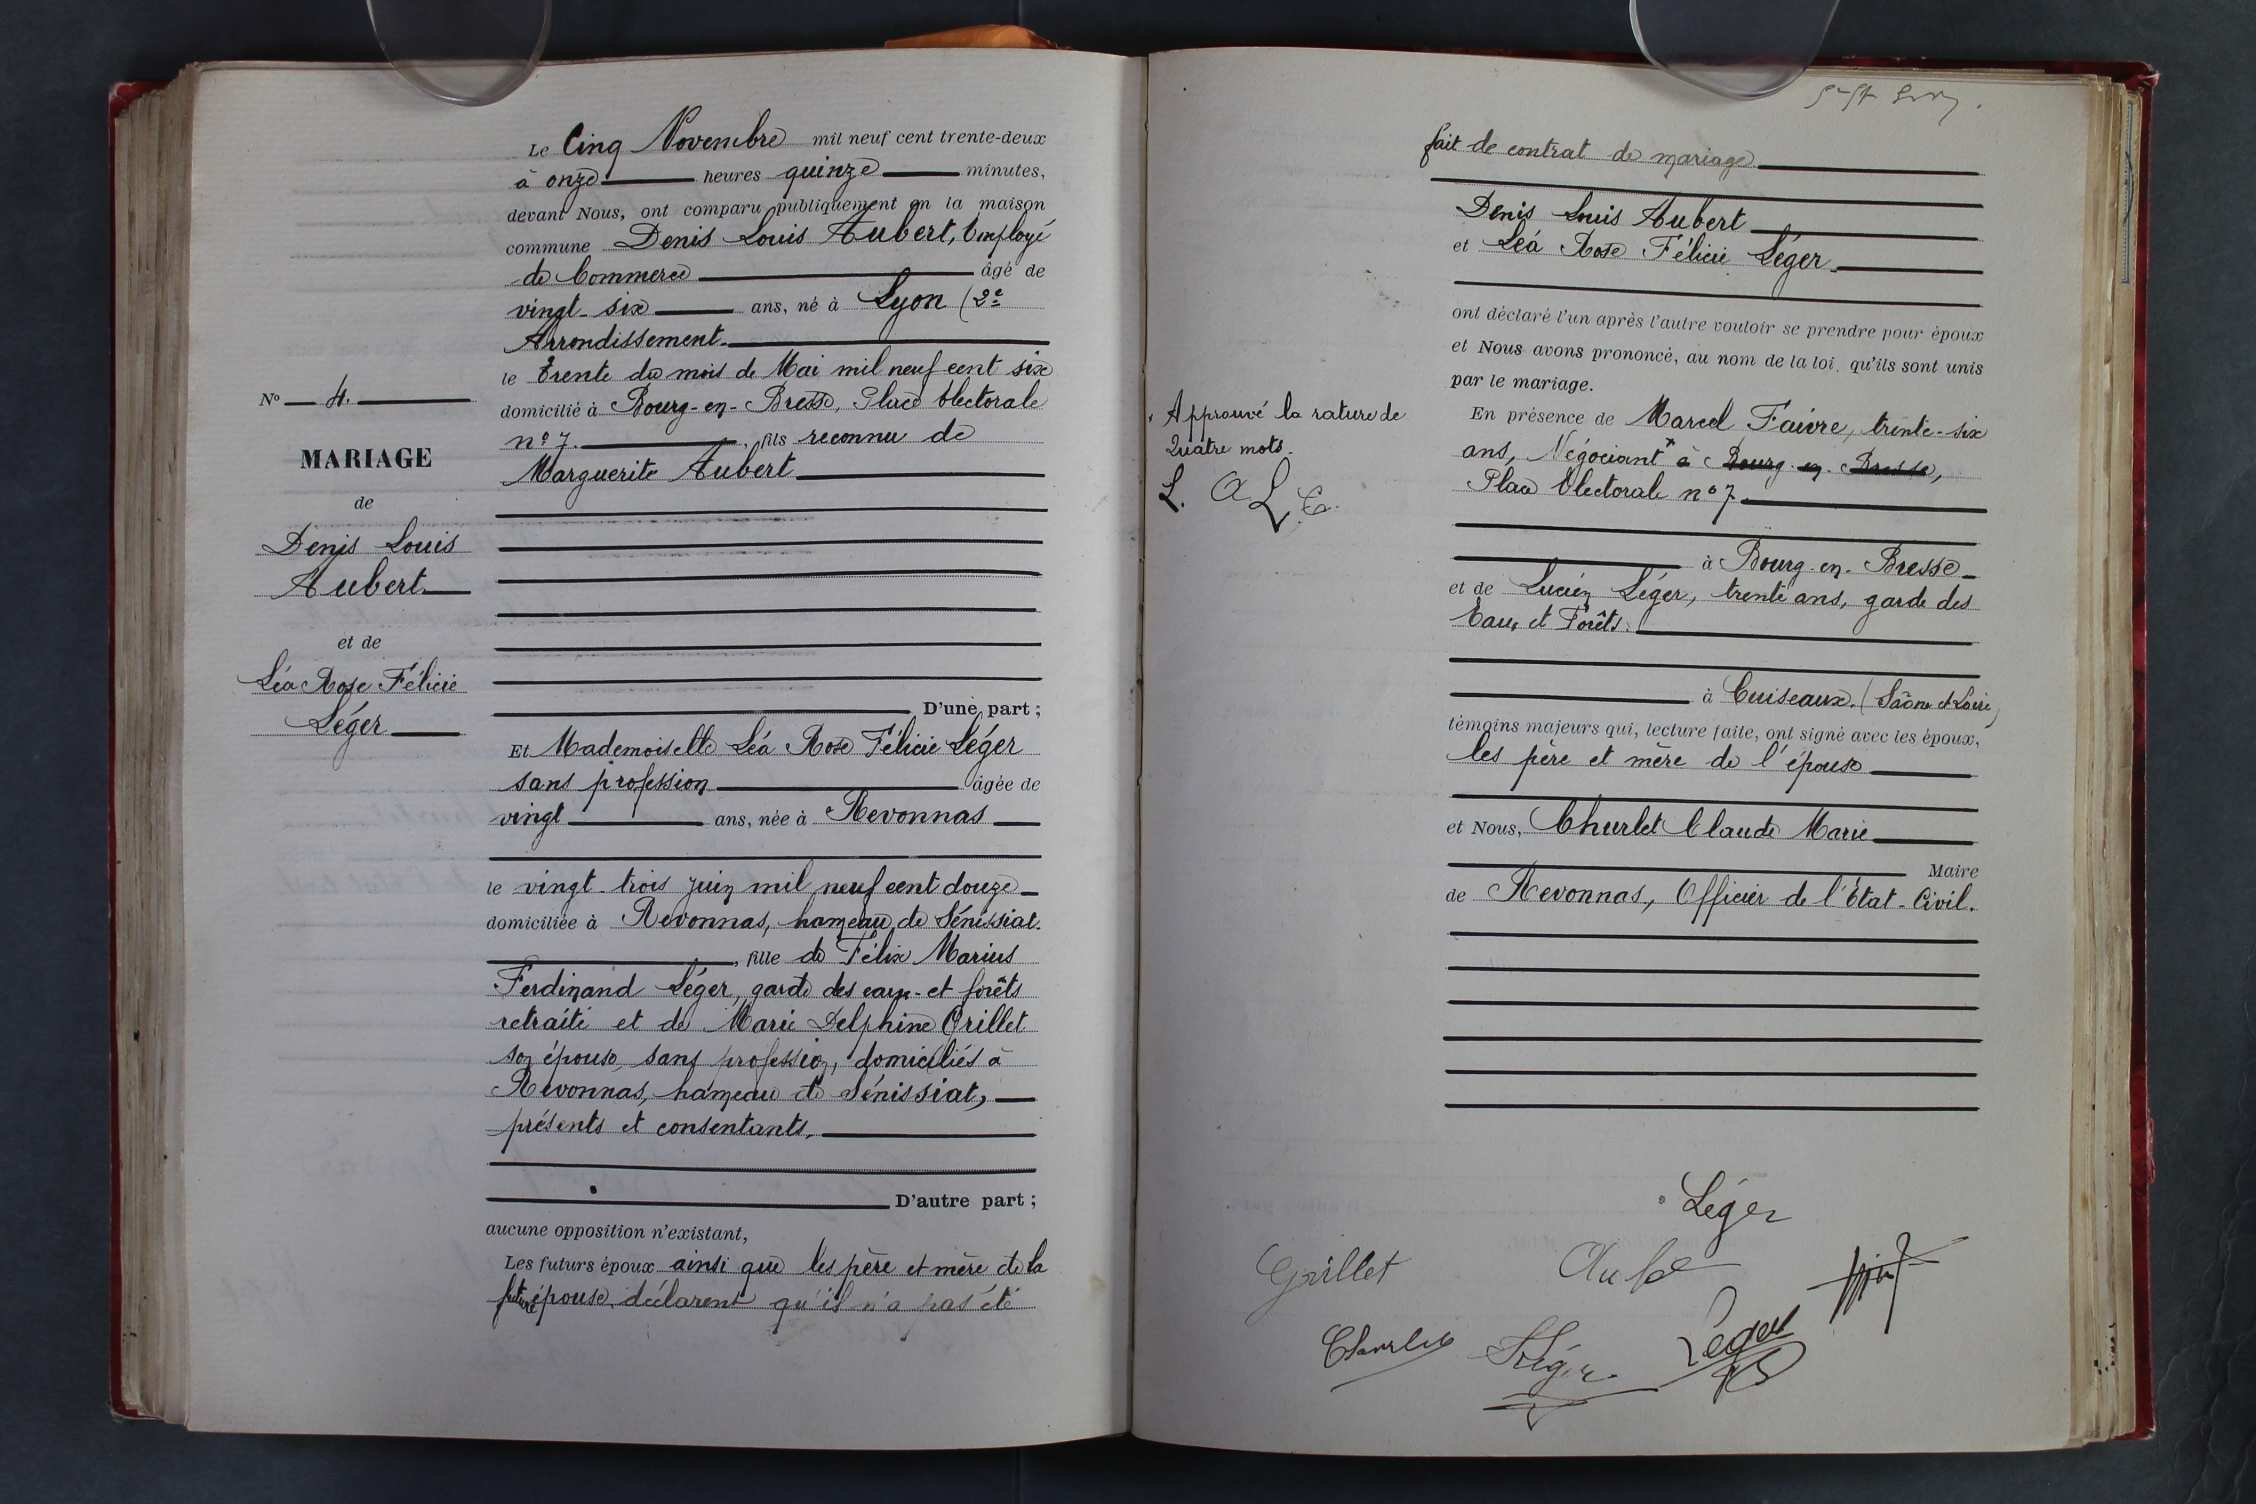 Le Cinq Novembre mil neuf cent trente-deux
à onze heures quinze minutes,
devant Nous, ont comparu publiquement en la maison
commune Denis Louis Aubert, Employé
de Commerce âgé de
vingt-six ans, né à Lyon (2e
Arrondissement
le trente du mois de Mai mil neuf cent six
domicilié à Bourg-en-Bresse, Place Electorale
n° 7. , fils reconnu de
Marguerite Aubert
D'une part ;
Et Mademoiselle Léa Rose Félicie Léger
sans profession âgée de
vingt ans, née à Revonnas
le vingt-trois juin mil neuf cent douze
domiciliée à Revonnas, hameau de Sénissiat.
, fille de Félix Marius
Ferdinand Léger, garde des eaux et forêts
retraité et de Marie Delphine Grillet
son épouse, sans profession, domiciliés à
Revonnas, hameau de Sénissiat,
présents et consentants,
D'autre part ;
aucune opposition n'existant,
Les futurs époux ainsi que les père et mère de la
future épouse, déclarent qu'il n'a pas été
N° 4.
MARIAGE
de
Denis Louis
Aubert
et de
Léa Rose Félicie
Léger
fait de contrat de mariage
Denis Louis Aubert
et Léa Rose Félicie Léger
ont déclaré l'un après l'autre vouloir se prendre pour époux
et Nous avons prononcé, au nom de la loi, qu'ils sont unis
par le mariage.
En présence de Marcel Faivre, trente-six
ans, Négociant x à Bourg-en-Bresse,
Place Electorale n° 7
à Bourg-en-Bresse
et de Lucien Léger, trente ans, garde des
Eaux et Forêts.
à Cuiseaux. (Saône et Loire)
témoins majeurs qui, lecture faite, ont signé avec les époux,
les père et mère de l'épouse
et Nous, Churlet Claude Marie
Maire
de Revonnas, Officier de l'État-Civil.
x Approuvé la rature de
Quatre mots.
L. a L C.
Léger
Grillet
Churlet
Léger
Leger